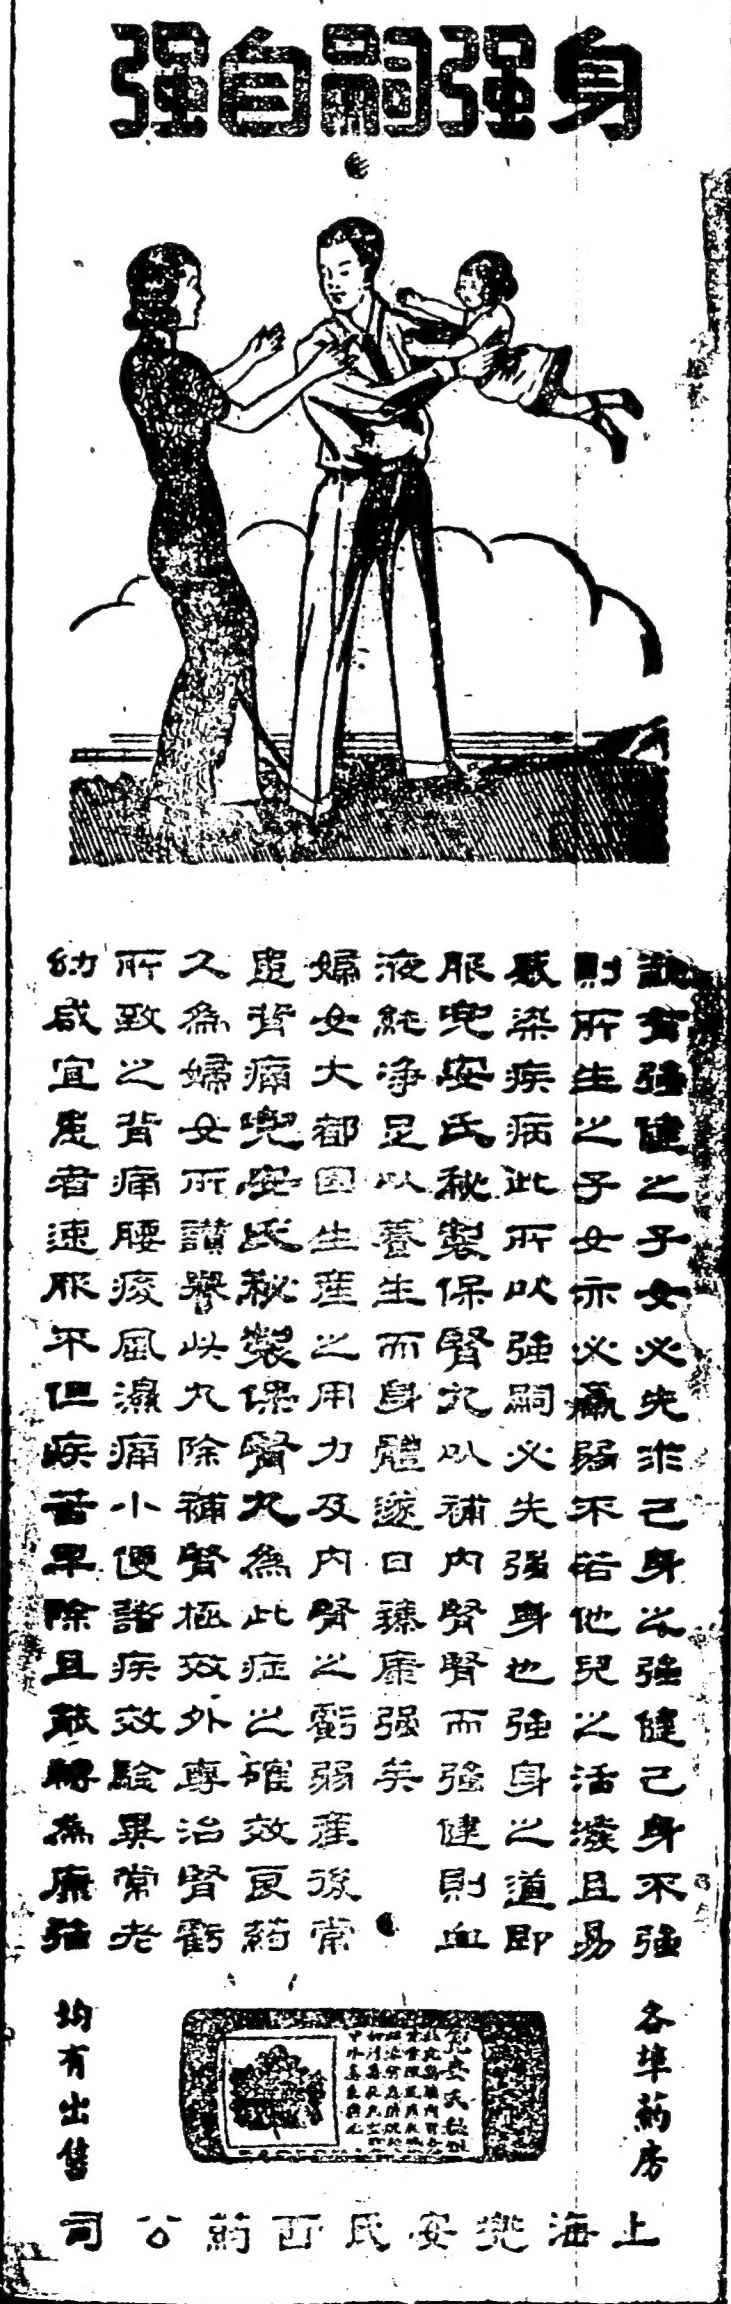 身强嗣自强
欲有强健之子女必先求己身之强健己身不强
則所生之子女亦必羸弱不若他兒之活潑且易
感染疾病此所以强嗣必先强身也强身之道即
服兜安氏秘製保腎丸以補内腎腎而强健則血
液純净足以養生而身體遂日臻康强矣
婦女大都因生産之用力及内腎之虧弱産後常
患背痛兜安氏秘製保腎丸為此症之確效良葯
久為婦女所讚譽此丸除補腎極效外專治腎虧
所致之背痛腰痠風濕痛小便諸疾效驗異常老
幼咸宜患者速服不但疾苦早除且能轉為康强
各埠葯房
兜安氏秘製
均有出售
上海兜安氏西葯公司